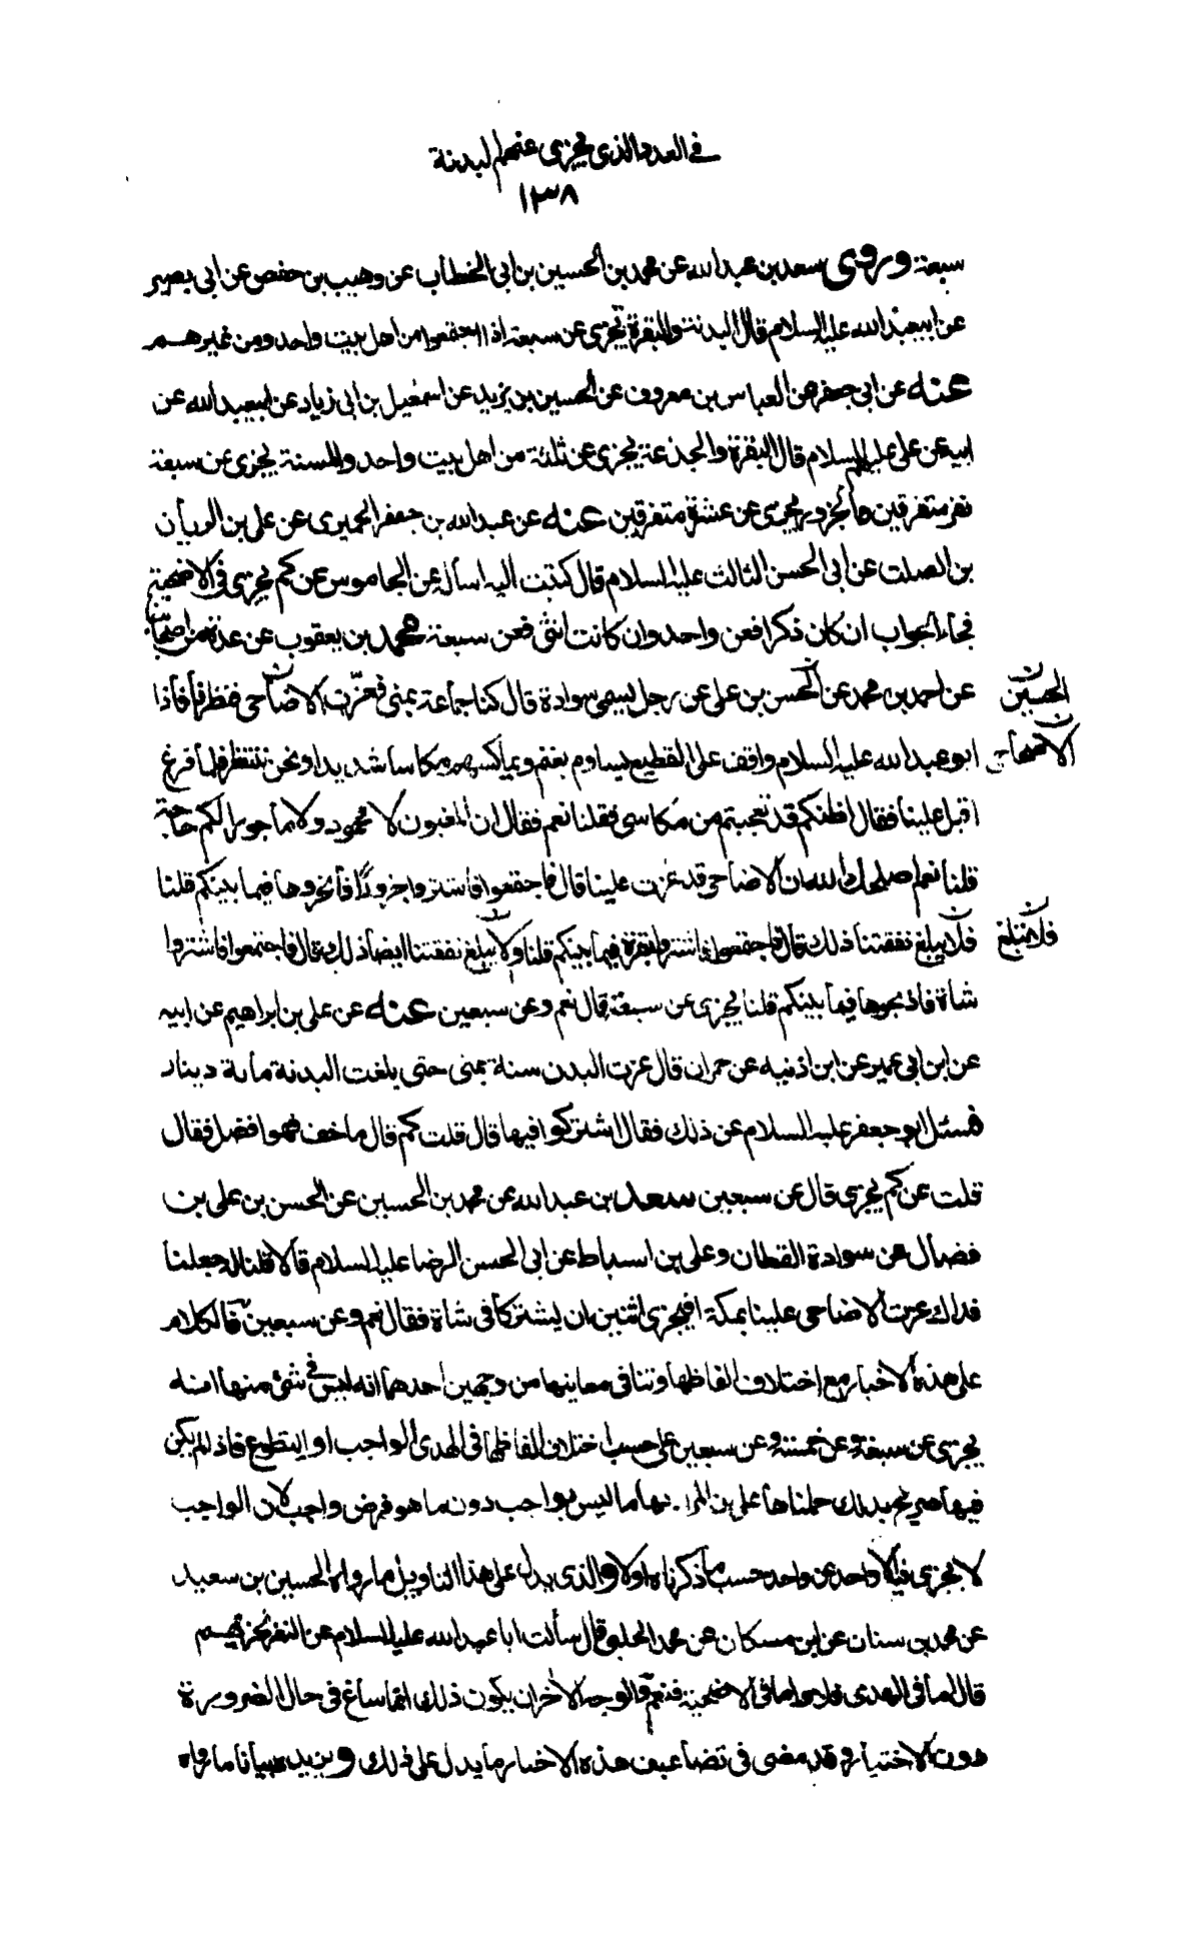 في العدد الذي يجزي عنهم البدنة
١٣٨
سبعة وروى سعد بن عبد الله عن محمد بن الحسين بن ابي الخطاب عن وهيب بن حفص عن ابي بصير
عن ابيعبد الله عليه السلام قال البدنة والبقرة تجزي عن سبعة اذا اجتمعوا من اهل بيت واحد ومن غيرهم
عنه عن ابي جعفر عن العباس بن معروف عن الحسين بن يزيد عن اسمعيل بن ابي زياد عن ابيعبد الله عن
ابيه عن علي عليهم السلام قال البقرة والجذعة يجزي عن ثلثة من اهل بيت واحد والمسنة يجزي عن سبعة
نفر متفرقين والجزور يجزي عن عشرة متفرقين عنه عن عبد الله بن جعفر الحميري عن علي بن الريان
بن الصلت عن ابي الحسن الثالث عليه السلام قال كتبت اليه اسأله عن الجاموس عن كم يجزي في الاضحية
فجاء الجواب ان كان ذكرا فعن واحد وان كانت انثى فعن سبعة محمد بن يعقوب عن عدة من اصحابنا
عن احمد بن محمد عن الحسن بن علي عن رجل يسمى سوادة قال كنا جماعة بمنى فعزّت الاضاحي فنظرنا فاذا
الحسين ن
ابو عبد الله عليه السلام واقف على القطيع يساوم بغنم ويماكسهم مكاسا شديدا ونحن ننتظر فلما فرغ
الاضاحي ن
اقبل علينا فقال اظنكم قد تعجبتم من مكاسي فقلنا نعم فقال ان المغبون لا محمود ولا ماجور الكم حاجة
قلنا نعم اصلحك الله ان الاضاحي قد عزت علينا قال فاجتمعوا فاشتروا جزورًا فانحروها فيما بينكم قلنا
فلا يبلغ نفقتنا ذلك قال فاجتمعوا فاشتروا بقرة فيما بينكم قلنا ولا يبلغ نفقتنا ايضا ذلك قال فاجتمعوا فاشتروا
فلا تبلغ ن
شاة فاذبحوها فيما بينكم قلنا يجزي عن سبعة قال نعم وعن سبعين عنه عن علي بن ابراهيم عن ابيه
عن ابن ابي عمير عن ابن اذنيه عن حمران قال عزت البدن سنة بمنى حتى بلغت البدنة مأة دينار
فسئل ابو جعفر عليه السلام عن ذلك فقال اشتركوا فيها قال قلت كم قال ما خف فهو افضل فقال
قلت عن كم يجزي قال عن سبعين سعد بن عبد الله عن محمد بن الحسين عن الحسن بن علي بن
فضال عن سوادة القطان وعلي بن اسباط عن ابي الحسن الرضا عليه السلام قالا قلنا له جعلنا
فداك عزت الاضاحي علينا بمكة افيجزي اثنين ان يشتركا في شاة فقال نعم وعن سبعين فالكلام
على هذه الاخبار مع اختلاف الفاظها وتنافي معانيها من وجهين احدهما انه ليس في شئ منها انه
يجزي عن سبعة وعن خمسة وعن سبعين على حسب اختلاف الفاظها في الهدي الواجب او التطوع فاذا لم يكن
فيها صريح بذلك حملناها على ان المراد بها ما ليس بواجب دون ما هو فرض واجب لان الواجب
لا يجزي فيه الا واحد عن واحد حسب ما ذكرناه اولا والذي يدل على هذا التاويل ما رواه الحسين بن سعيد
عن محمد بن سنان عن ابن مسكان عن محمد الحلبي قال سألت ابا عبد الله عليه السلام عن النفر تجزيهم
قال اما في الهدي فلا واما في الاضحية فنعم والوجه الاخر ان يكون ذلك انما ساغ في حال الضرورة
دون الاختيار وقد مضى في تضاعيف هذه الاخبار ما يدل على ذلك ويزيده بيانا ما رواه